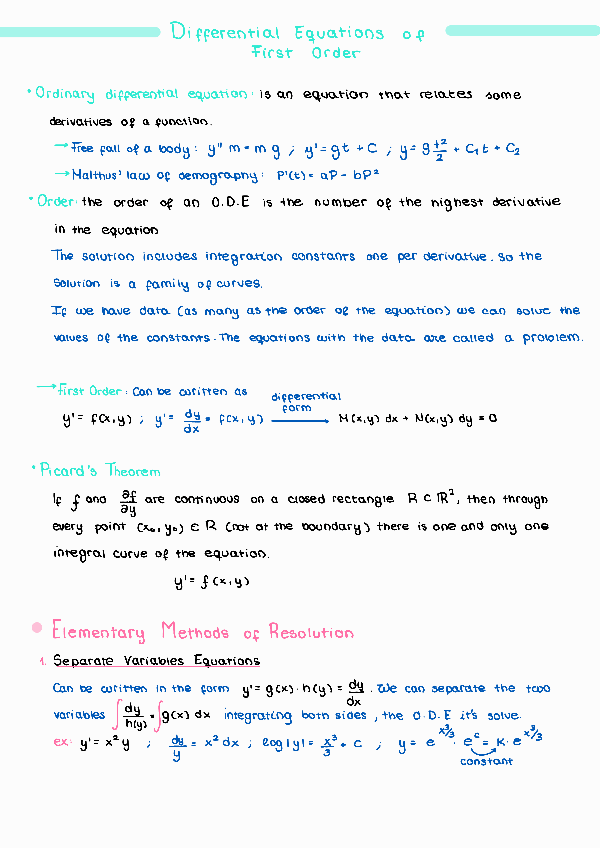 Differential Equations of
First Order
• Ordinary differential equation: is an equation that relates some
derivatives of a function.
→ Free fall of a body: y'' m = m g ; y' = gt + C ; y = g t²/2 + C₁t + C₂
→ Malthus' law of demography: P'(t) = aP - bP²
• Order: the order of an O.D.E is the number of the highest derivative
in the equation
The solution includes integration constants one per derivative. So the
solution is a family of curves.
If we have data (as many as the order of the equation) we can solve the
values of the constants. The equations with the data are called a problem.
→ First Order: Can be written as
y' = f(x,y) ; y' = dy/dx = f(x,y) differential form → M(x,y) dx + N(x,y) dy = 0
• Picard's Theorem
If f and ∂f/∂y are continuous on a closed rectangle R ⊂ ℝ², then through
every point (x₀,y₀) ∈ R (not at the boundary) there is one and only one
integral curve of the equation.
y' = f(x,y)
• Elementary Methods of Resolution
1. Separate Variables Equations
Can be written in the form y' = g(x) · h(y) = dy/dx . We can separate the two
variables ∫ dy/h(y) = ∫ g(x) dx integrating both sides, the O.D.E it's solve.
ex: y' = x² y ; dy/y = x² dx ; log|y| = x³/3 + C ; y = e^x³/3 · e^c = K · e^x³/3
constant